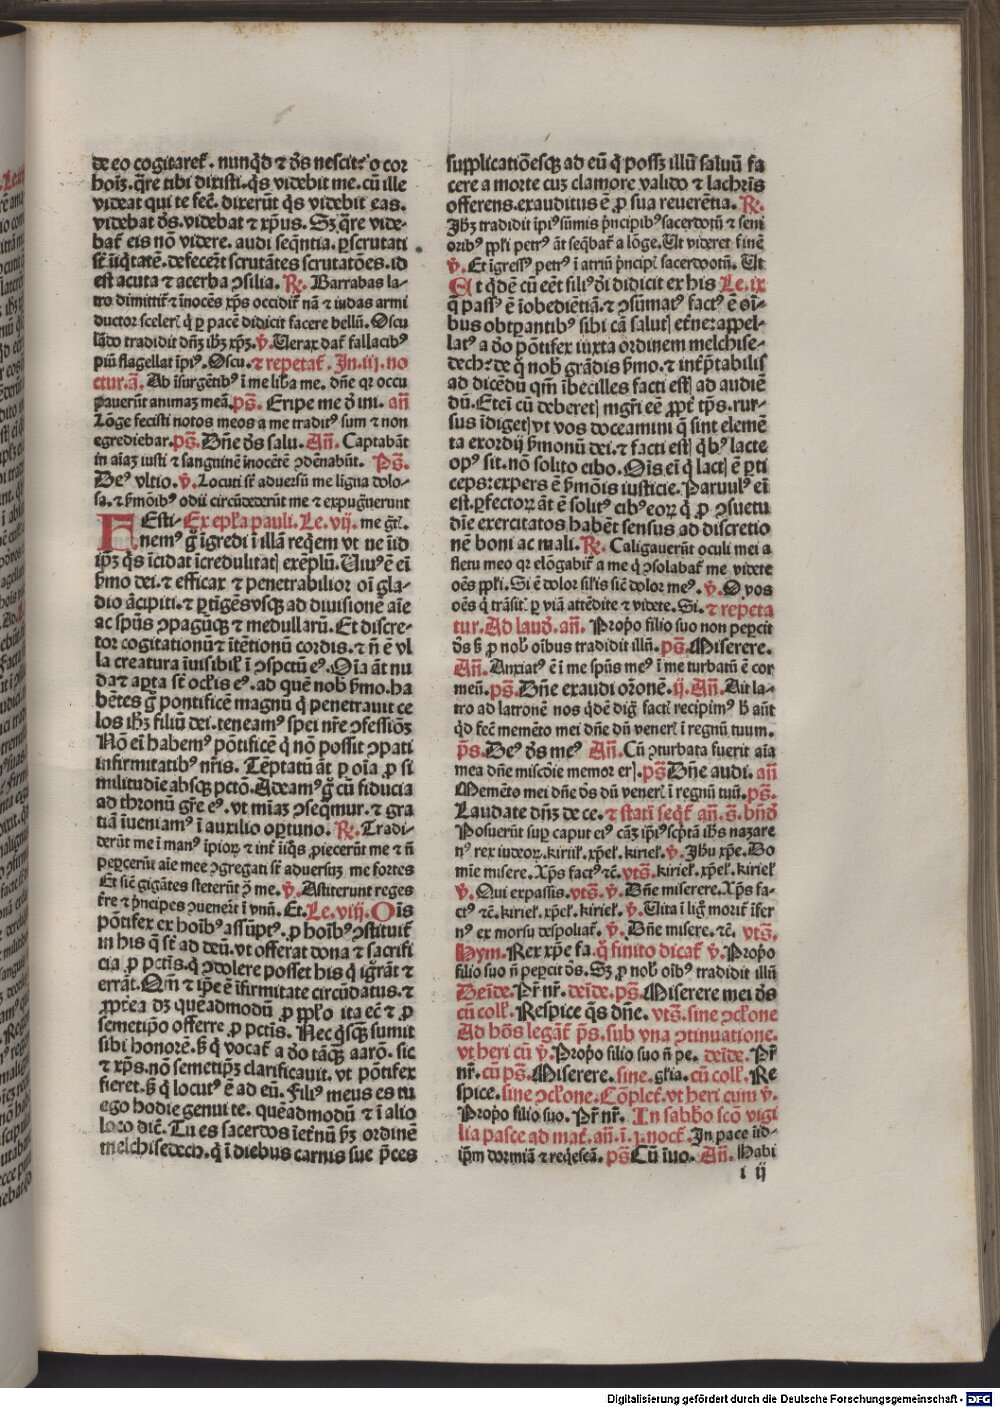 de eo cogitaret̃. nunqͥd ⁊ dʼs nescit: o cor
hoīs. q̄re tibi dixisti. q̄s videbit me. cū ille
videat qui te fec̄. dixerūt q̄s videbit eas.
videbat dʼs. videbat ⁊ xp̄us. Sꝫ q̄re vide-
bat̃ eis nō videre. audi seq̄ntia. ꝑscrutati
st̄ iiq̄tatē. defecer̄t scrutātes scrutatōes. id
est acuta ⁊ acerba ꝯsilia. R̄. Barrabas la-
tro dimittit̃ ⁊ inocēs xp̄s occidit̃ nā ⁊ iudas armi
ductor scelerꝭ q̄ ꝑ pacē didicit facere bellū. Oscu
lādo tradidit dn̄ꝫ ihꝫ xp̄ꝫ. v̄. Uerax dat̃ fallacibꝰ
piū flagellat īpiꝰ. Oscu. ⁊ repetat̃. In .iij. no
ctur. ā. Ab īsurgētibꝰ ī me lib̃a me. dn̄e qr occu
pauerūt animaꝫ meā. ps̄. Eripe me d̓ ini. an̄
Lōge fecisti notos meos a me traditꝰ sum ⁊ non
egrediebar. ps̄. Dn̄e dʼs salu. An̄. Captabāt
in aīaꝫ iusti ⁊ sanguinē inocētē ꝯdēnabūt. Ps̄.
Deꝰ vltio. v̄. Locuti st̄ aduersū me ligna dolo-
sa. ⁊ ẜmōibꝰ odii circūdederūt me ⁊ expugn̄uerunt
FEsti- Ex ep̄la pauli. Le. vij. me gt̄i.
nemꝰ g̃ īgredi ī illā reqͥem vt ne iid
ip̄ꝫ q̄s īcidat īcredulitatꝭ exēplū. Uiuꝰ ē ei
ẜmo dei. ⁊ efficax ⁊ penetrabilior oī gla-
dio ācipiti. ⁊ ꝑtigēs vsqꝫ ad diuisionē aīe
ac sp̄us ꝯpagūqꝫ ⁊ medullarū. Et discre-
tor cogitationū ⁊ ītētionū cordis. ⁊ n̄ ē vl
la creatura īuisibilꝭ ī ꝯspctū eꝰ. Oīa āt nu
da ⁊ aꝑta st̄ oclīs eꝰ. ad quē nob̄ ẜmo. ha
bētes g̃ pontificē magnū q̄ penetrauit ce
los ihꝫ filiū dei. teneamꝰ spei nr̄e ꝯfessiōꝫ
Nō ei habemꝰ pōtificē q̄ nō possit ꝯpati
infirmitatibꝰ nr̄is. Tēptatū āt ꝑ oīa ꝓ si
militudie absqꝫ pctō. Adeamꝰ g̃ cū fiducia
ad thronū gr̄e eꝰ. vt mīaꝫ ꝯseqͥmur. ⁊ gra
tiā īueniamꝰ ī auxilio oꝑtuno. R̄. Tradi-
derūt me ī manꝰ īpioꝝ ⁊ int̃ iiq̄s ꝓiecerūt me ⁊ n̄
peꝑcerūt aīe mee ꝯgregati st̄ aduersuꝫ me fortes
Et sic̄ gigātes steterūt ꝯ me. v̄. Astiterunt reges
t̄re ⁊ pͥncipes ꝯuener̄t ī vnū. Et. Le. viij. Oīs
pōtifex ex hoībꝰ assūptꝰ. ꝓ hoībꝰ ꝯstituit̃
in his q̄ st̄ ad deū. vt offerat dona ⁊ sacrifi
cia ꝓ pctīs. q̄ ꝯdolere posset his q̄ ignͦrāt ⁊
errāt. Qm̄ ⁊ ip̄e ē īfirmitate circūdatus. ⁊
ꝓpt̃ea dꝫ queadmodū ꝓ ppl̄o ita ec̄ ⁊ ꝓ
semetip̄o offerre ꝓ pctīs. Nec qͥsqꝫ sumit
sibi honorē. ẜ q̄ vocat̃ a d̓o tāqꝫ aarō. sic
⁊ xp̄s. nō semetip̄ꝫ clarificauit. vt pōtifex
fieret. ẜ q̄ locutꝰ ē ad eū. Filiꝰ meus es tu
ego hodie genui te. queādmodū ⁊ ī alio
loco dic̄. Tu es sacerdos īet̃nū ẜꝫ ordinē
melchisedech. q̄ ī diebus carnis sue p̃ces
supplicatiōesqꝫ ad eū q̄ possꝫ illū saluū fa
cere a morte cuꝫ clamore valido ⁊ lachrīs
offerens. exauditus ē ꝓ sua reuerētia. R̄.
Jhꝫ tradidit īpiꝰ sūmis pͥncipibꝰ sacerdotū ⁊ seni
oribꝰ ppl̄i petrꝰ āt seqͥbat̃ a lōge. Ut videret finē
v̄. Et īgressꝰ petrꝰ ī atriū pͥncipꝭ sacerdotū. Ut
At qͥdē cū eēt filiꝰ dʼi didicit ex his Le. ix
q̄ passꝰ ē īobedietiā. ⁊ ꝯsūmatꝰ factꝰ ē oī-
bus obtꝑantibꝰ sibi cā salutꝭ et̃ne: appel-
latꝰ a d̓o pōtifex iuxta ordinem melchise-
dech: de q̄ nob̄ grādis ẜmo. ⁊ int̃p̃tabilis
ad dicēdū qm̄ ībecilles facti estꝭ ad audiē
dū. Etei cū deberetꝭ mgr̄i eē ꝓpt̃ tp̄s. rur-
sus īdigetꝭ vt vos doceamini q̄ sint elemē
ta exordij ẜmonū dei. ⁊ facti estꝭ qͥbꝰ lacte
opꝰ sit. nō solito cibo. Oīs ei q̄ lactꝭ ē ꝑti
ceps: expers ē ẜmōis iusticie. Paruulꝰ ei
est. ꝑfectorꝝ āt ē solitꝰ cibꝰ eorꝝ q̄ ꝓ ꝯsuetu
dīe exercitatos habēt sensus ad discretio
nē boni ac mali. R̄. Caligauerūt oculi mei a
fletu meo qr elōgabit̃ a me q̄ ꝯsolabat̃ me videte
oēs ppl̄i. Si ē dolor sil̄is sic̄ dolor meꝰ. v̄. O vos
oēs q̄ trāsit̃ꝭ ꝑ viā attēdite ⁊ videte. Si. ⁊ repeta
tur. Ad laud̓. an̄. Proprͦo filio suo non peꝑcit
dʼs ẜ ꝓ nob̄ oībus tradidit illū. ps̄. Miserere.
An̄. Anxiatꝰ ē ī me sp̄us meꝰ ī me turbatū ē cor
meū. ps̄. Dn̄e exaudi or̄onē. ij. An̄. Ait la-
tro ad latronē nos qͥdē dig̃ factꝭ recipimꝰ ẜ aūt
qͥd fec̄ memēto mei dn̄e dū venerꝭ ī regnū tuum.
p̄s. Deꝰ dʼs meꝰ An̄. Cū ꝯturbata fuerit aīa
mea dn̄e misc̄die memor erꝭ. ps̄ Dn̄e audi. an̄
Memēto mei dn̄e dʼs dū venerꝭ ī regnū tuū. ps̄.
Laudate dn̄ꝫ de ce. ⁊ stati seqͥt̃ an̄. s̄. bn̄d̓
Posuerūt suꝑ caput eiꝰ cāꝫ ip̄iꝰ sc̄ptā ihʼs nazare
nꝰ rex iudeoꝝ. kiriel̄. xp̄el̄. kiriel̄. v̄. Jhu xp̄e. Do
mīe misere. Xp̄s factꝰ ⁊c̄. vts̄. kiriel̄. xp̄el̄. kiriel̄
v̄. Qui expassis. vts̄. v̄. Dn̄e miserere. Xp̄s fa-
ctꝰ ⁊c̄. kiriel̄. xp̄el̄. kiriel̄. v̄. Uita ī lig̃ morit̃ īfer
nꝰ ex morsu despoliat̃. v̄. Dn̄e misere. ⁊c̄. vts̄.
Hym. Rex xp̄e fa. q̄ finito dicat̃ v̄. Proprͦo
filio suo n̄ peꝑcit dʼs. Sꝫ ꝓ nob̄ oībꝰ tradidit illū
Deīde. Pr̄ nr̄. deīde. ps̄. Miserere mei dʼs
cū coll̄. Respice q̄s dn̄e. vts̄. sine ꝯcl̄one
Ad hōs legāt̃ p̄s. sub vna ꝯtinuatione.
vt heri cū v̄. Proprͦo filio suo n̄ pe. deīde. Pr̄
nr̄. cū ps̄. Miserere. sine. gl̄ia. cū coll̄. Re
spice. sine ꝯcl̄one. Cōplet̃. vt heri cum v̄.
Proprͦo filio suo. Pr̄ nr̄. In sabb̄o sc̄o vigi
lia pasce ad mat̃. an̄. ī. j. noct̃. In pace iid-
ip̄m dormiā ⁊ reqͥescā. ps̄ Cū īuo. An̄. Habi
i ij
Digitalisierung gefördert durch die Deutsche Forschungsgemeinschaft - DFG